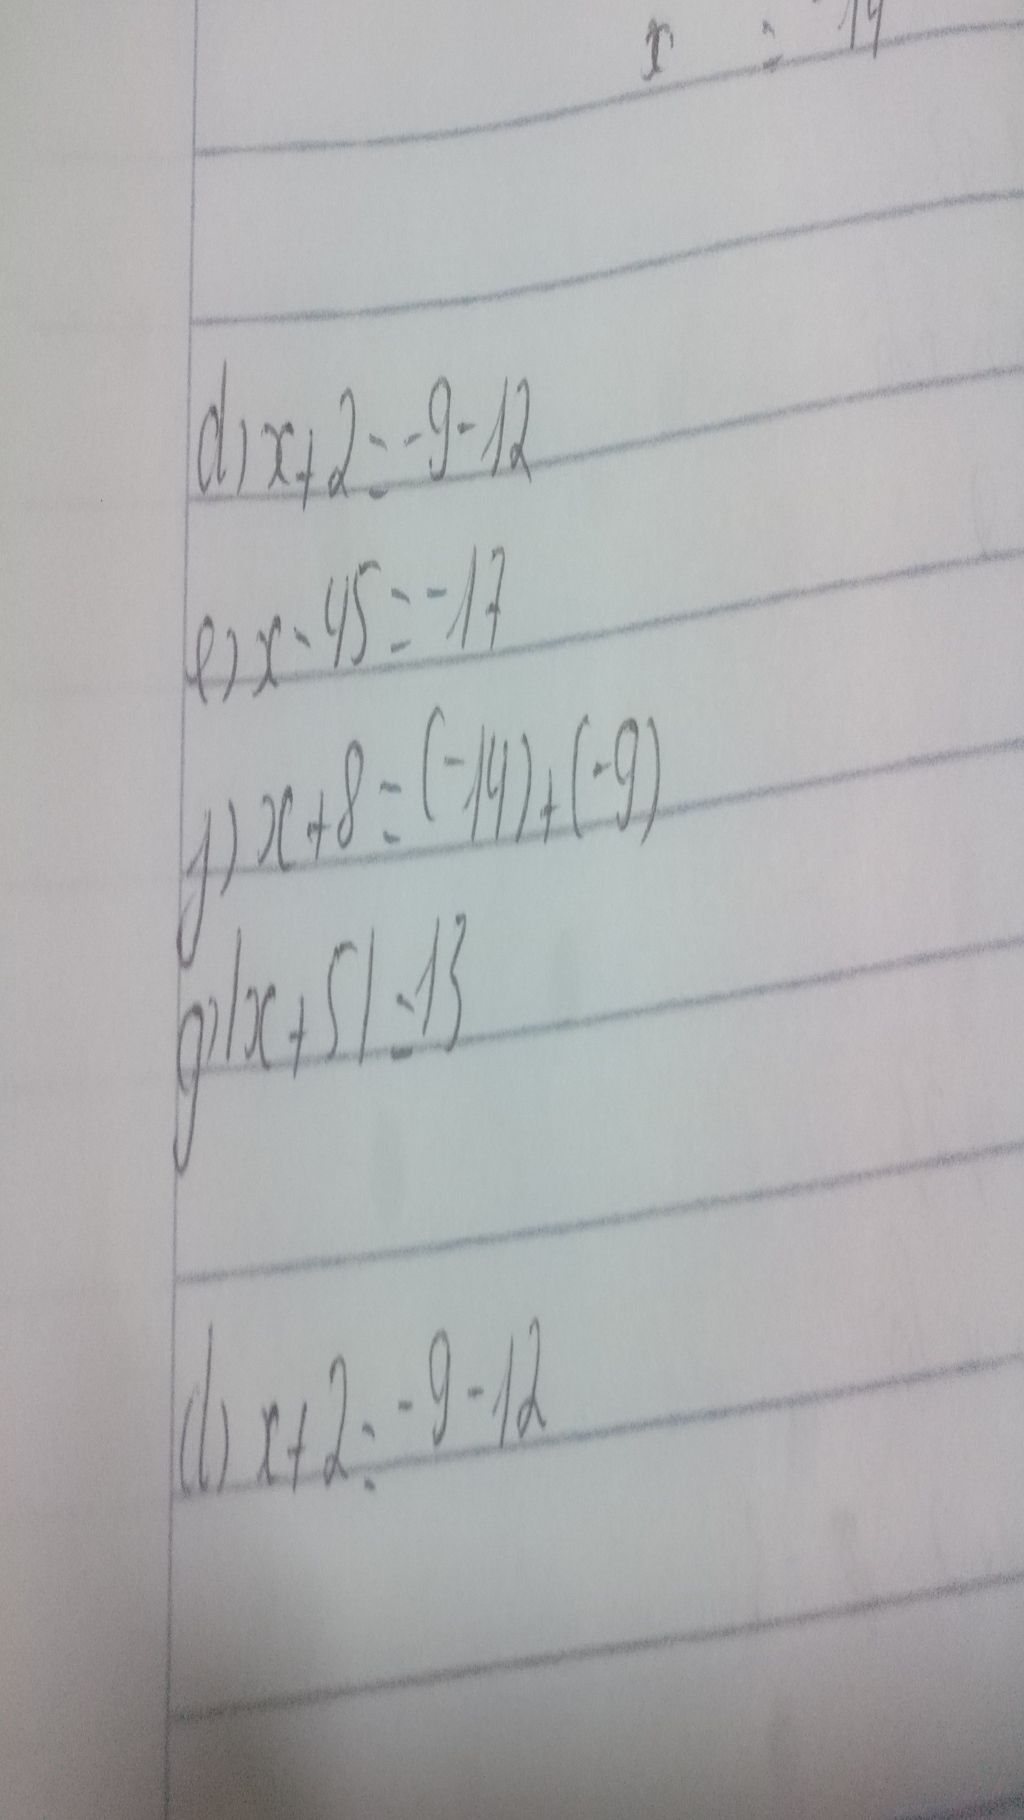 x = -14
d) x + 2 = -9 - 12
e) x - 45 = -17
y) x + 8 = (-14) + (-9)
g) |x + 5| = 13
d) x + 2 = -9 - 12